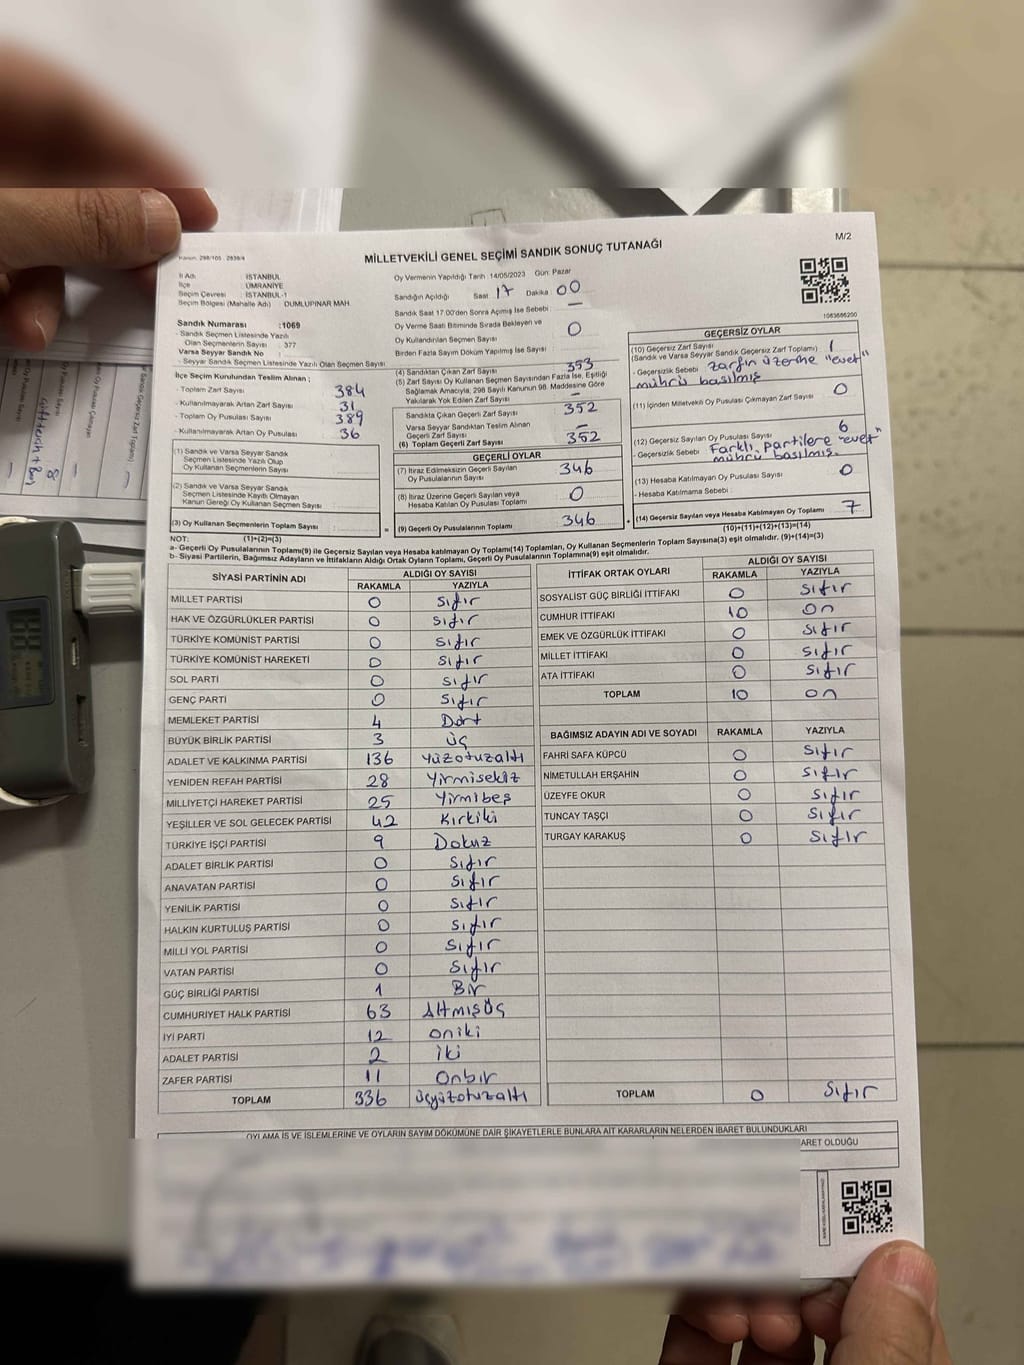 M/2
Kanun: 298/105 , 2839/4
MİLLETVEKİLİ GENEL SEÇİMİ SANDIK SONUÇ TUTANAĞI
İl Adı : İSTANBUL
İlçe : ÜMRANİYE
Seçim Çevresi : İSTANBUL-1
Seçim Bölgesi (Mahalle Adı) : DUMLUPINAR MAH.
Sandık Numarası :1069
- Sandık Seçmen Listesinde Yazılı
Olan Seçmenlerin Sayısı : 377
Varsa Seyyar Sandık No :
- Seyyar Sandık Seçmen Listesinde Yazılı Olan Seçmen Sayısı
İlçe Seçim Kurulundan Teslim Alınan ;
- Toplam Zarf Sayısı 384
- Kullanılmayarak Artan Zarf Sayısı 31
- Toplam Oy Pusulası Sayısı 389
- Kullanılmayarak Artan Oy Pusulası 36
(1) Sandık ve Varsa Seyyar Sandık
Seçmen Listesinde Yazılı Olup
Oy Kullanan Seçmenlerin Sayısı
(2) Sandık ve Varsa Seyyar Sandık
Seçmen Listesinde Kayıtlı Olmayan
Kanun Gereği Oy Kullanan Seçmen Sayısı
(3) Oy Kullanan Seçmenlerin Toplam Sayısı :
Oy Vermenin Yapıldığı Tarih :14/05/2023 Gün: Pazar
Sandığın Açıldığı Saat 17 Dakika 00
Sandık Saat 17.00'den Sonra Açılmış İse Sebebi : —
Oy Verme Saati Bitiminde Sırada Bekleyen ve
Oy Kullandırılan Seçmen Sayısı : 0
Birden Fazla Sayım Döküm Yapılmış İse Sayısı :
(4) Sandıktan Çıkan Zarf Sayısı 353
(5) Zarf Sayısı Oy Kullanan Seçmen Sayısından Fazla İse, Eşitliği
Sağlamak Amacıyla, 298 Sayılı Kanunun 98. Maddesine Göre
Yakılarak Yok Edilen Zarf Sayısı —
Sandıkta Çıkan Geçerli Zarf Sayısı 352
Varsa Seyyar Sandıktan Teslim Alınan
Geçerli Zarf Sayısı —
(6) Toplam Geçerli Zarf Sayısı 352
GEÇERLİ OYLAR
(7) İtiraz Edilmeksizin Geçerli Sayılan
Oy Pusulasının Sayısı 346
(8) İtiraz Üzerine Geçerli Sayılan veya
Hesaba Katılan Oy Pusulası Toplamı 0
= (9) Geçerli Oy Pusulalarının Toplamı 346
1063686200
GEÇERSİZ OYLAR
(10) Geçersiz Zarf Sayısı 1
(Sandık ve Varsa Seyyar Sandık Geçersiz Zarf Toplamı)
- Geçersizlik Sebebi zarfın üzerine "evet"
mührü basılmış
(11) İçinden Milletvekili Oy Pusulası Çıkmayan Zarf Sayısı 0
(12) Geçersiz Sayılan Oy Pusulası Sayısı 6
- Geçersizlik Sebebi : Farklı partilere "evet"
mührü basılmış.
(13) Hesaba Katılmayan Oy Pusulası Sayısı 0
- Hesaba Katılmama Sebebi :
+ (14) Geçersiz Sayılan veya Hesaba Katılmayan Oy Toplamı 7
NOT: (1)+(2)=(3) (10)+(11)+(12)+(13)=(14)
a- Geçerli Oy Pusulalarının Toplamı(9) ile Geçersiz Sayılan veya Hesaba katılmayan Oy Toplamı(14) Toplamları, Oy Kullanan Seçmenlerin Toplam Sayısına(3) eşit olmalıdır. (9)+(14)=(3)
b- Siyasi Partilerin, Bağımsız Adayların ve İttifakların Aldığı Ortak Oyların Toplamı, Geçerli Oy Pusulalarının Toplamına(9) eşit olmalıdır.
SİYASİ PARTİNİN ADI ALDIĞI OY SAYISI
RAKAMLA YAZIYLA
MİLLET PARTİSİ 0 Sıfır
HAK VE ÖZGÜRLÜKLER PARTİSİ 0 Sıfır
TÜRKİYE KOMÜNİST PARTİSİ 0 Sıfır
TÜRKİYE KOMÜNİST HAREKETİ 0 Sıfır
SOL PARTİ 0 Sıfır
GENÇ PARTİ 0 Sıfır
MEMLEKET PARTİSİ 4 Dört
BÜYÜK BİRLİK PARTİSİ 3 üç
ADALET VE KALKINMA PARTİSİ 136 Yüzotuzaltı
YENİDEN REFAH PARTİSİ 28 Yirmisekiz
MİLLİYETÇİ HAREKET PARTİSİ 25 Yirmibeş
YEŞİLLER VE SOL GELECEK PARTİSİ 42 Kırkiki
TÜRKİYE İŞÇİ PARTİSİ 9 Dokuz
ADALET BİRLİK PARTİSİ 0 Sıfır
ANAVATAN PARTİSİ 0 Sıfır
YENİLİK PARTİSİ 0 Sıfır
HALKIN KURTULUŞ PARTİSİ 0 Sıfır
MİLLİ YOL PARTİSİ 0 Sıfır
VATAN PARTİSİ 0 Sıfır
GÜÇ BİRLİĞİ PARTİSİ 1 Bir
CUMHURİYET HALK PARTİSİ 63 AltmışÜç
İYİ PARTİ 12 oniki
ADALET PARTİSİ 2 iki
ZAFER PARTİSİ 11 Onbir
TOPLAM 336 üçyüzotuzaltı
İTTİFAK ORTAK OYLARI ALDIĞI OY SAYISI
RAKAMLA YAZIYLA
SOSYALİST GÜÇ BİRLİĞİ İTTİFAKI 0 Sıfır
CUMHUR İTTİFAKI 10 on
EMEK VE ÖZGÜRLÜK İTTİFAKI 0 Sıfır
MİLLET İTTİFAKI 0 Sıfır
ATA İTTİFAKI 0 Sıfır
TOPLAM 10 on
BAĞIMSIZ ADAYIN ADI VE SOYADI RAKAMLA YAZIYLA
FAHRİ SAFA KÜPCÜ 0 Sıfır
NİMETULLAH ERŞAHİN 0 Sıfır
ÜZEYFE OKUR 0 Sıfır
TUNCAY TAŞÇI 0 Sıfır
TURGAY KARAKUŞ 0 Sıfır
TOPLAM 0 Sıfır
OYLAMA İŞ VE İŞLEMLERİNE VE OYLARIN SAYIM DÖKÜMÜNE DAİR ŞİKAYETLERLE BUNLARA AİT KARARLARIN NELERDEN İBARET BULUNDUKLARI
ARET OLDUĞU